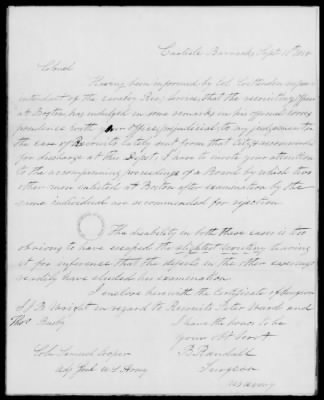 Carlisle Barracks, Sept 11th
Colonel
Having been informed by Col. Crittenden superin-
tendent of the cavalry Rec. Service, that the recruiting officer
at Boston has indulged in some remarks in his official corres-
pondence with office, prejudicial to my judgement in
the case of Recruits lately sent from that City & recommended
for discharge at this Depot, I have to invite your attention
to the accompanying proceedings of a Board by which two
other men enlisted at Boston after examination by the
same individuals are recommended for rejection.
The disability in both these cases is too
obvious to have escaped the slightest scrutiny leaving
it for inference that the defects in the other cases might
readily have eluded his examination.
I enclose herewith the Certificate of Surgeon
J. J. B. Wright in regard to Recruits Peter Ward and
Thos Busby
I have the honor to be
your Obt Servt
B. Randall
Surgeon
U.S. Army
Col. Samuel Cooper
Adj Genl U.S. Army